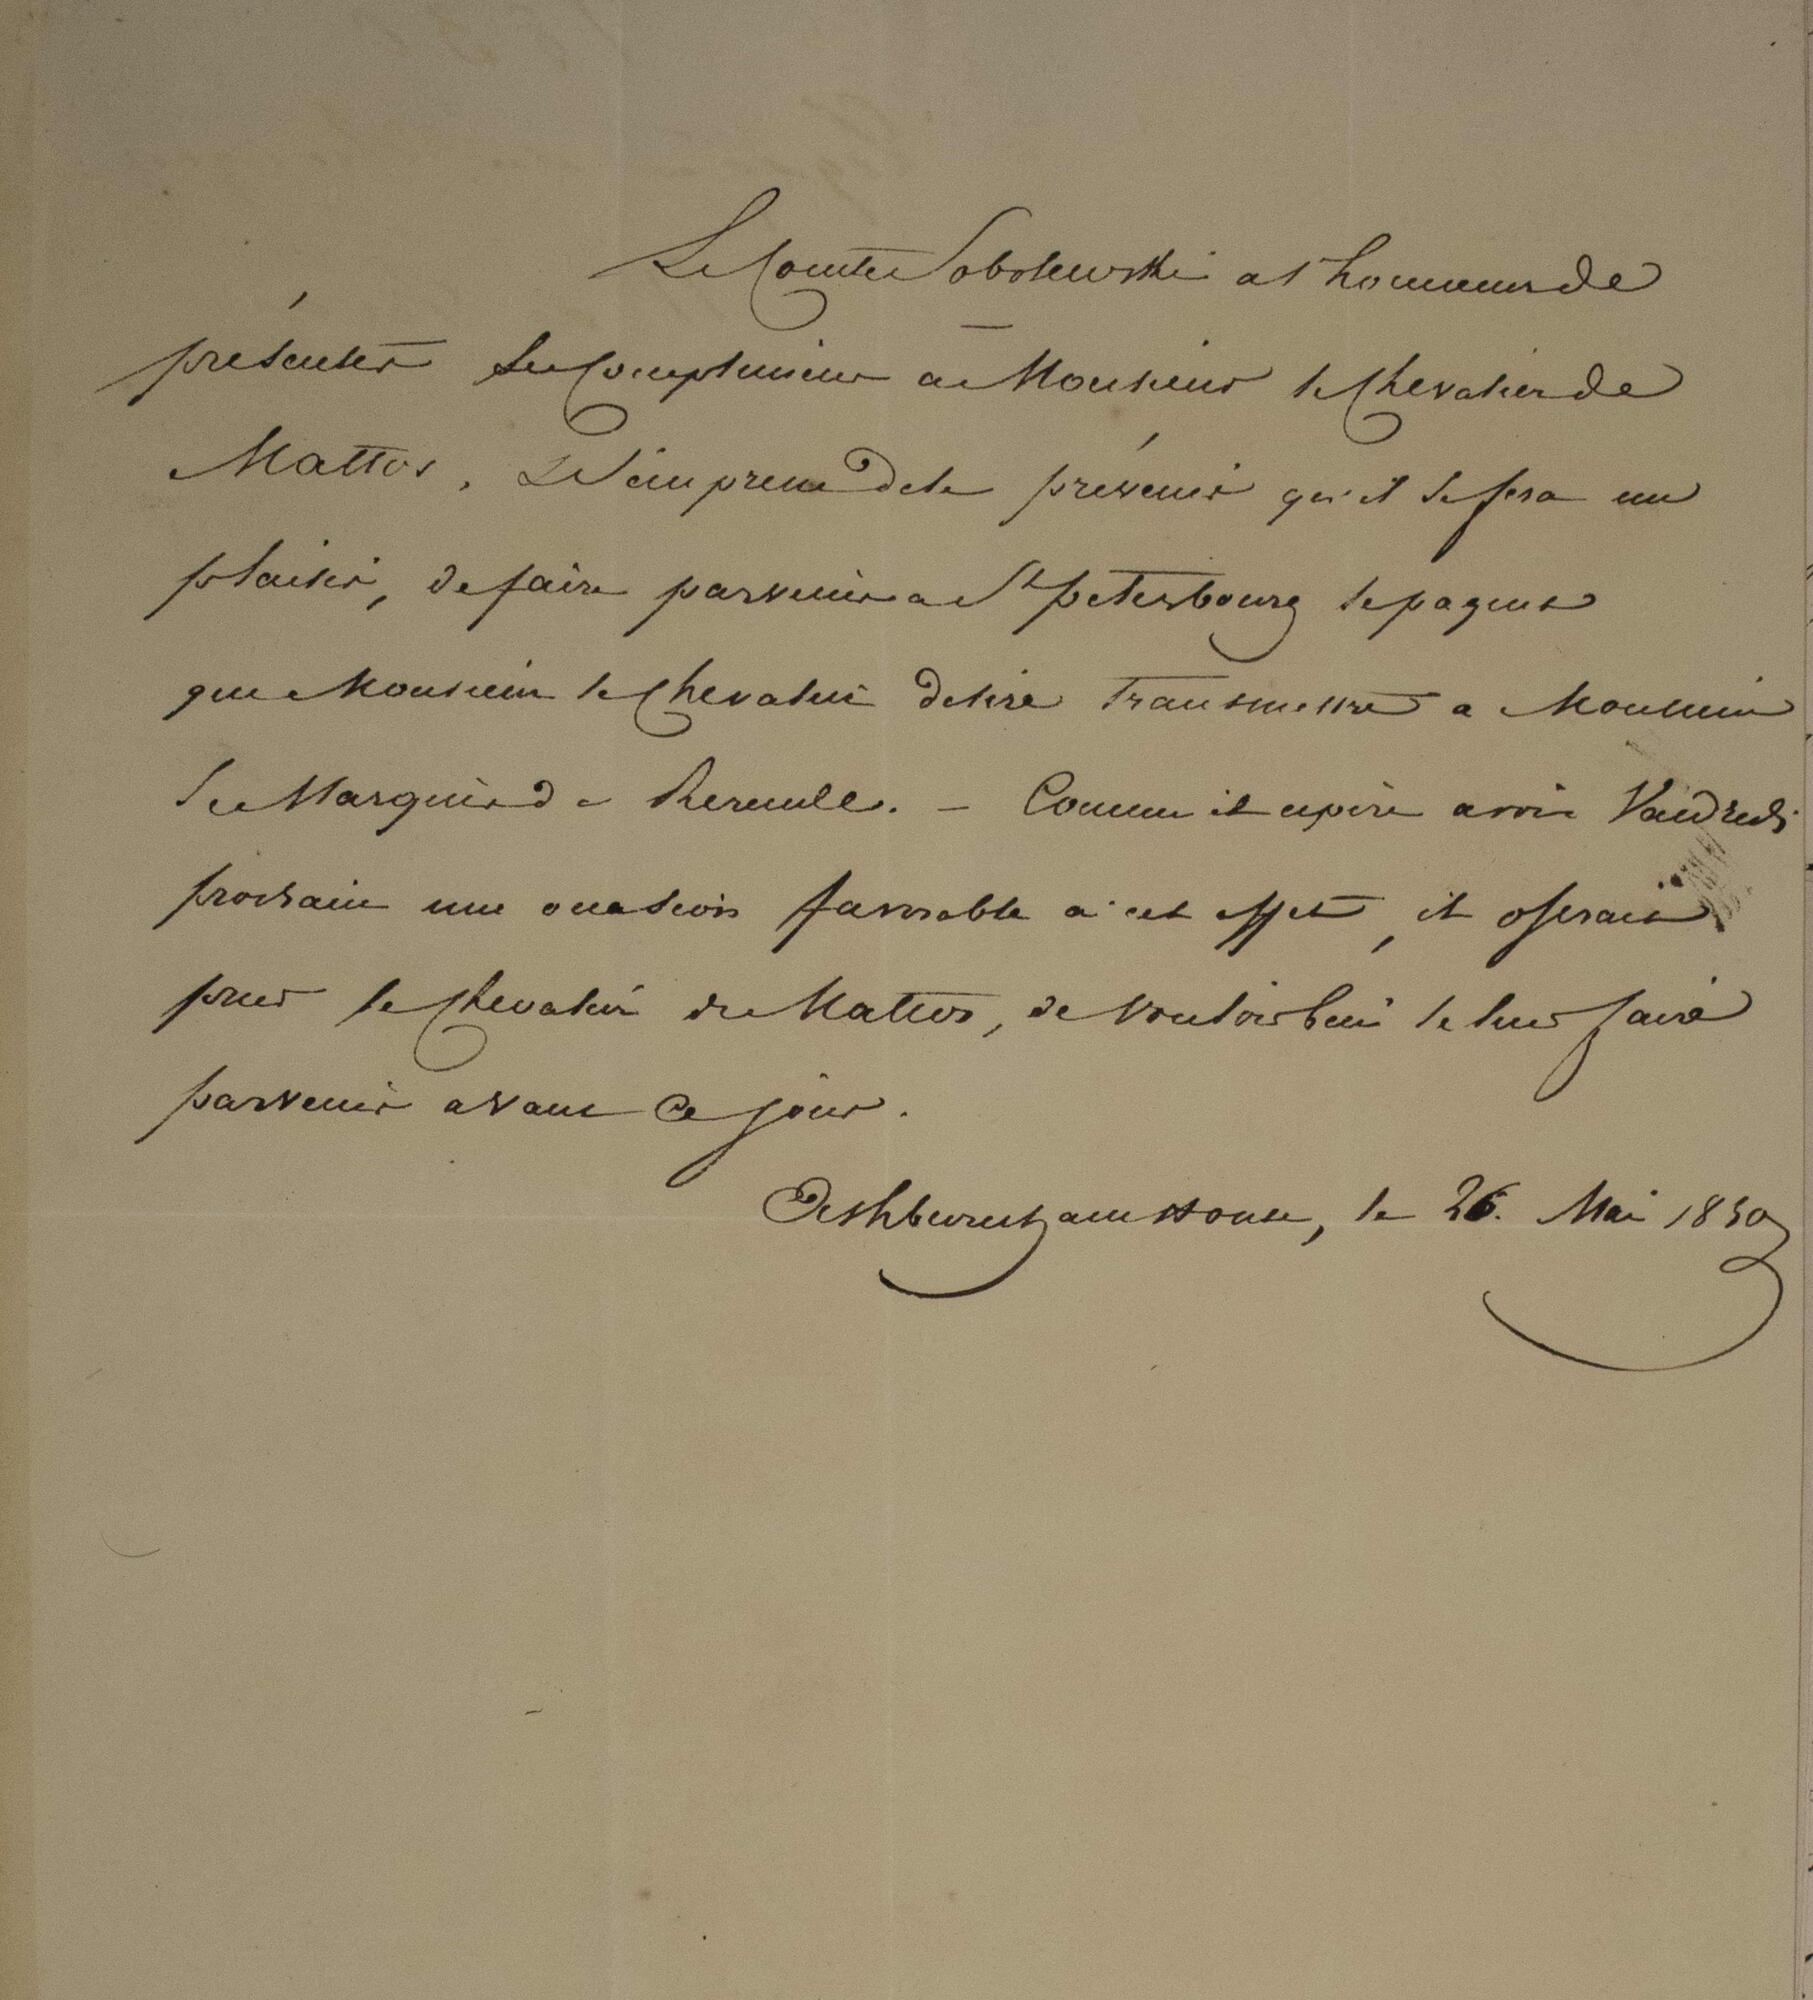 Le Comte Sobolewski a l'honneur de
présenter ses Complimens a Monsieur le Chevalier de
Mattos, Et s'empresse de le prévenir qu'il se fera un
plaisir, de faire parvenir a St petersbourg le paquet
que Monsieur le Chevalier desire transmettre a Monsieur
le Marquis de Resende. – Comme il espère avoir Vendredi
prochain une occasion favorable a cet effet, il oserait
prier le Chevalier de Mattos, de vouloir bien le lui faire
parvenir avant ce jour.
Ashburnham House, le 26. Mai 1830